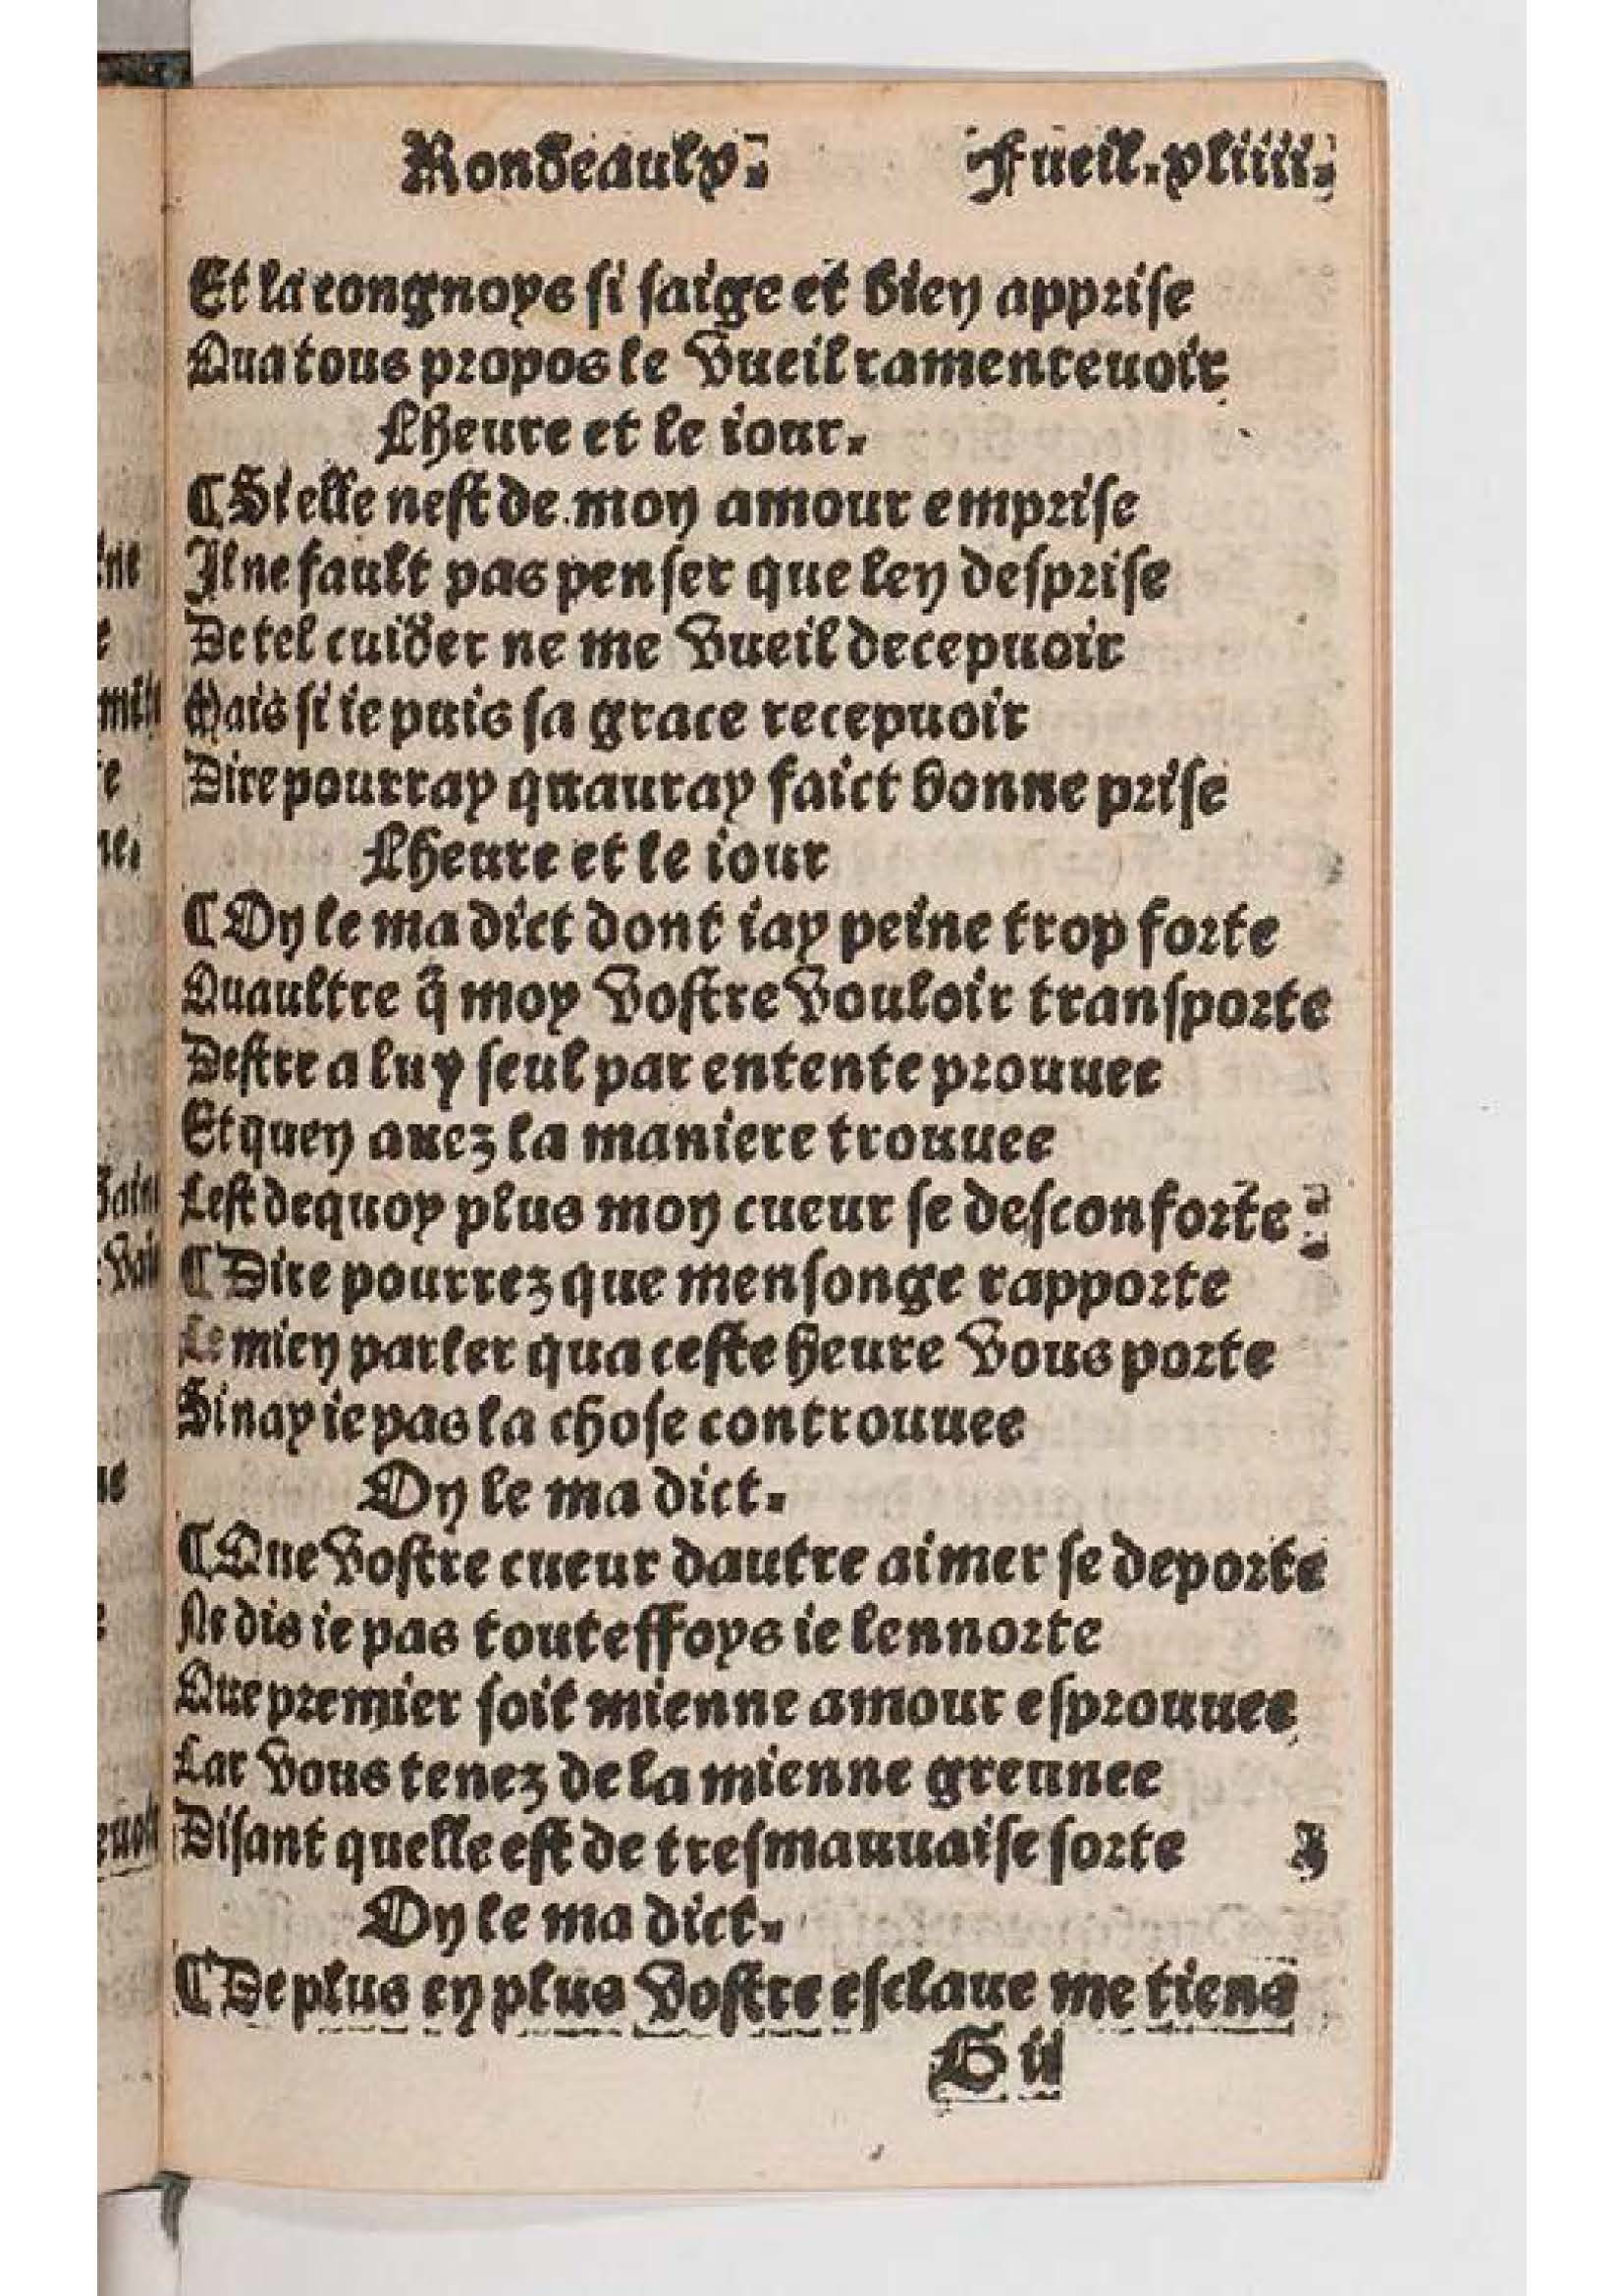 Rondeaulx. Fueil. xliiii.
Et la congnoys si saige et bien apprise
Qua tous propos le vueil ramenteuoir
Lheure et le iour.
¶ Si elle nest de mon amour emprise
Il ne fault pas penser que len desprise
De tel cuider ne me vueil decepuoir
Mais si ie puis sa grace recepuoir
Dire pourray quauray faict bonne prise
Lheure et le iour
¶ On le ma dict dont iay peine trop forte
Quaultre q̃ moy vostre vouloir transporte
Destre a luy seul par entente prouuee
Et quen auez la maniere trouuee
Cest dequoy plus mon cueur se desconforte
¶ Dire pourrez que mensonge rapporte
Le mien parler qua ceste heure vous porte
Si nay ie pas la chose controuuee
On le ma dict.
¶ Que vostre cueur dautre aimer se deporte
Ne dis ie pas touteffoys ie lennorte
Que premier soit mienne amour esprouuee
Car vous tenez de la mienne greuuee
Disant quelle est de tresmauuaise sorte
On le ma dict.
¶ De plus en plus vostre esclaue me tiens
G ii